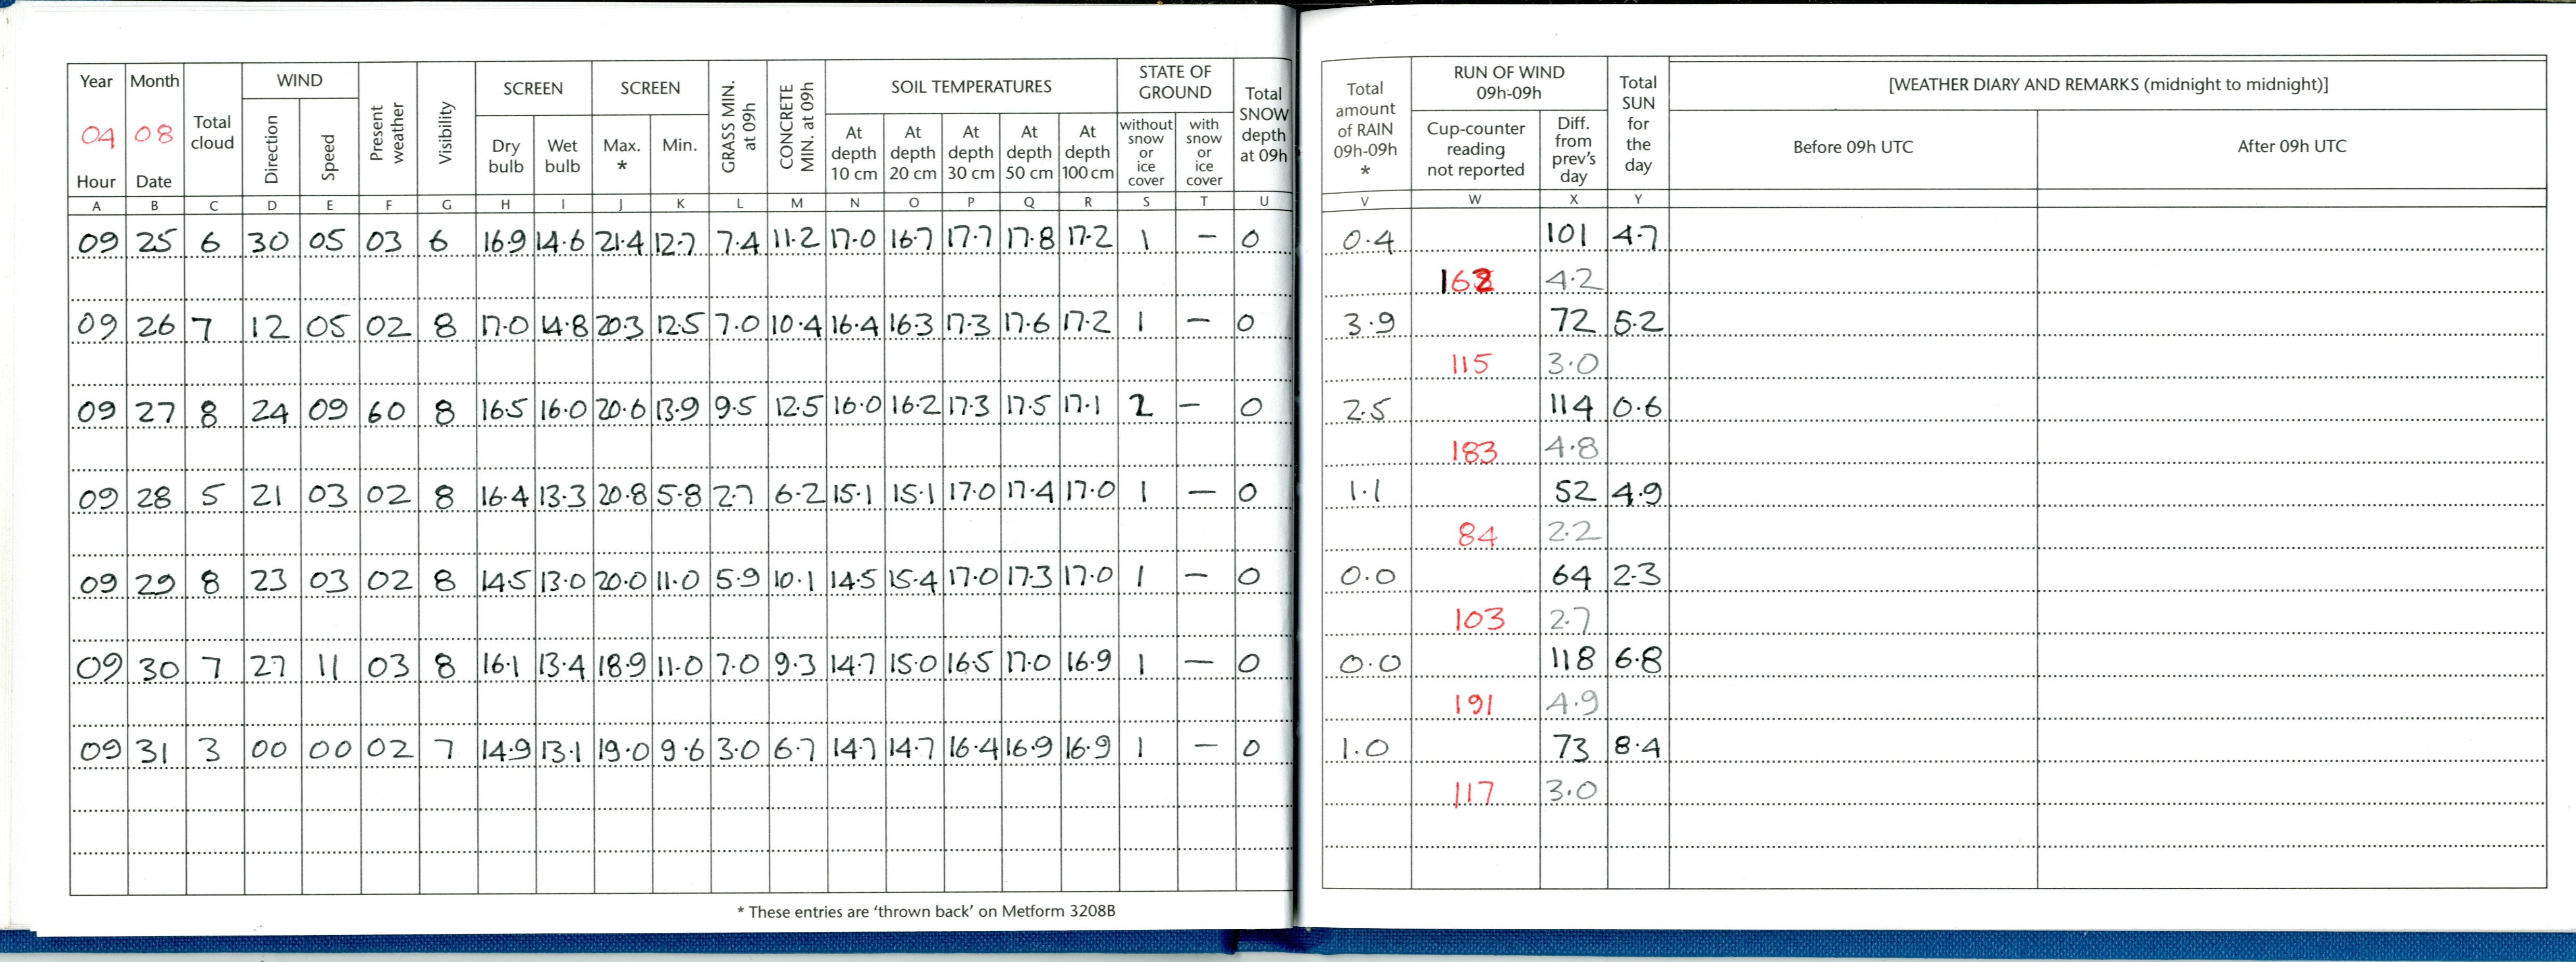 Year Month Total cloud WIND Present weather Visibility SCREEN SCREEN GRASS MIN. at 09h CONCRETE MIN. at 09h SOIL TEMPERATURES STATE OF GROUND Total SNOW depth at 09h Total amount of RAIN 09h-09h * RUN OF WIND 09h-09h Total SUN for the day [WEATHER DIARY AND REMARKS (midnight to midnight)]
04 08 Direction Speed Dry bulb Wet bulb Max. * Min. At depth 10 cm At depth 20 cm At depth 30 cm At depth 50 cm At depth 100 cm without snow or ice cover with snow or ice cover Cup-counter reading not reported Diff. from prev's day Before 09h UTC After 09h UTC
Hour Date
A B C D E F G H I J K L M N O P Q R S T U V W X Y
09 25 6 30 05 03 6 16.9 14.6 21.4 12.7 7.4 11.2 17.0 16.7 17.7 17.8 17.2 1 – 0 0.4 101 4.7
162 4.2
09 26 7 12 05 02 8 17.0 14.8 20.3 12.5 7.0 10.4 16.4 16.3 17.3 17.6 17.2 1 – 0 3.9 72 5.2
115 3.0
09 27 8 24 09 60 8 16.5 16.0 20.6 13.9 9.5 12.5 16.0 16.2 17.3 17.5 17.1 2 – 0 2.5 114 0.6
183 4.8
09 28 5 21 03 02 8 16.4 13.3 20.8 5.8 2.7 6.2 15.1 15.1 17.0 17.4 17.0 1 – 0 1.1 52 4.9
84 2.2
09 29 8 23 03 02 8 14.5 13.0 20.0 11.0 5.9 10.1 14.5 15.4 17.0 17.3 17.0 1 – 0 0.0 64 2.3
103 2.7
09 30 7 27 11 03 8 16.1 13.4 18.9 11.0 7.0 9.3 14.7 15.0 16.5 17.0 16.9 1 – 0 0.0 118 6.8
191 4.9
09 31 3 00 00 02 7 14.9 13.1 19.0 9.6 3.0 6.7 14.7 14.7 16.4 16.9 16.9 1 – 0 1.0 73 8.4
117 3.0
* These entries are 'thrown back' on Metform 3208B